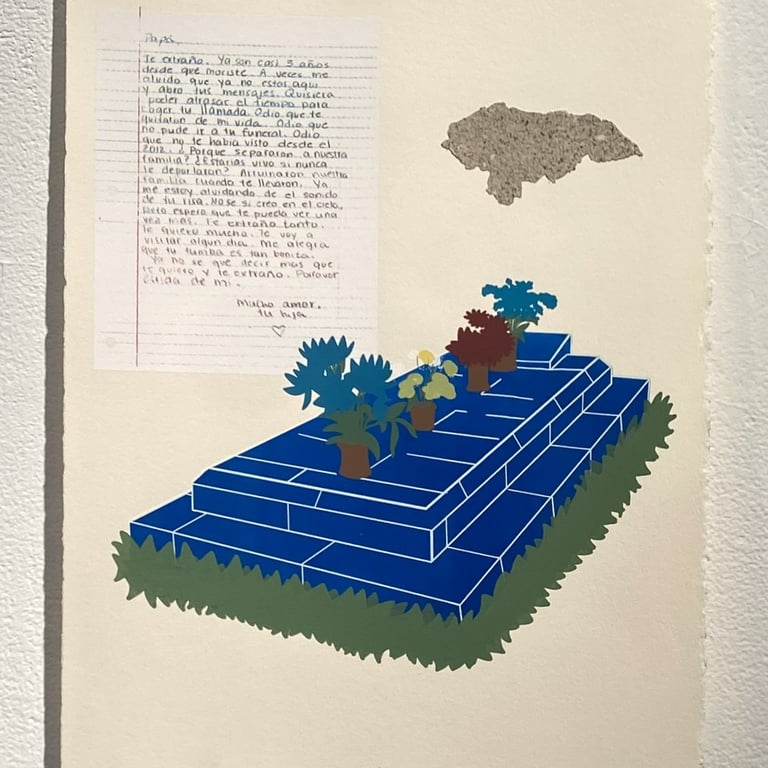 Papá,
Te extraño. Ya son casi 3 años
desde que moriste. A veces me
olvido que ya no estas aqui
y abro tus mensajes. Quisiera
poder atrasar el tiempo para
coger tu llamada. Odio que te
quitaran de mi vida. Odio que
no pude ir a tu funeral. Odio
que no te habia visto desde el
2012. ¿Porque separaron a nuestra
familia? ¿Estarias vivo si nunca
te deportaron? Arruinaron nuestra
familia cuando te llevaron. Ya
me estoy olvidando de el sonido
de tu risa. No se si creo en el cielo,
pero espero que te pueda ver una
vez mas. Te extraño tanto.
Te quiero mucho. Te voy a
visitar algun dia. Me alegra
que tu tumba es tan bonita.
Ya no se que decir mas que
te quiero y te extraño. Porfavor
cuida de mi.
Mucho amor,
tu hija